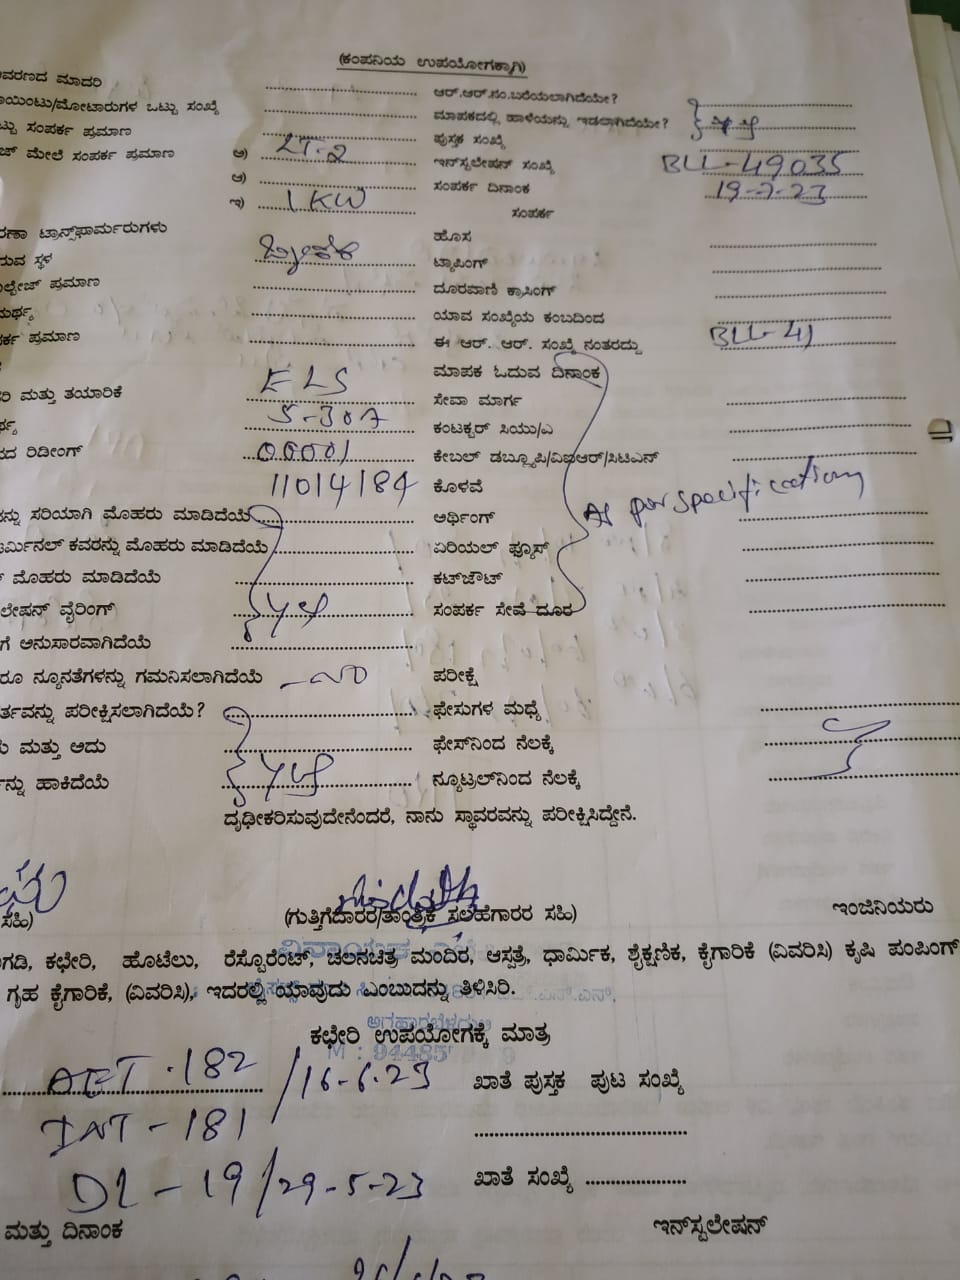 (ಕಂಪನಿಯ ಉಪಯೋಗಕ್ಕಾಗಿ)
ಆವರಣದ ಮಾದರಿ ಆರ್.ಆರ್.ನಂ.ಬರೆಯಲಾಗಿದೆಯೇ?
ಾಯಿಂಟು/ಮೋಟಾರುಗಳ ಒಟ್ಟು ಸಂಖ್ಯೆ ಮಾಪಕದಲ್ಲಿ ಹಾಳೆಯನ್ನು ಇಡಲಾಗಿದೆಯೇ?
ಟ್ಟು ಸಂಪರ್ಕ ಪ್ರಮಾಣ ಪುಸ್ತಕ ಸಂಖ್ಯೆ
ಜ್ ಮೇಲೆ ಸಂಪರ್ಕ ಪ್ರಮಾಣ ಅ) LT-2 ಇನ್‌ಸ್ಟಲೇಷನ್ ಸಂಖ್ಯೆ BLL-49035
ಆ) ಸಂಪರ್ಕ ದಿನಾಂಕ 19-7-23
ಇ) 1KW ಸಂಪರ್ಕ
ರಣಾ ಟ್ರಾನ್ಸ್‌ಫಾರ್ಮರುಗಳು ಹೊಸ
ರುವ ಸ್ಥಳ ಟ್ಯಾಪಿಂಗ್
ೋಲ್ಟೇಜ್ ಪ್ರಮಾಣ ದೂರವಾಣಿ ಕ್ರಾಸಿಂಗ್
ಮರ್ಥ್ಯ ಯಾವ ಸಂಖ್ಯೆಯ ಕಂಬದಿಂದ
ರ್ಕ ಪ್ರಮಾಣ ಈ ಆರ್. ಆರ್. ಸಂಖ್ಯೆ ನಂತರದ್ದು BLL-41
ELS ಮಾಪಕ ಓದುವ ದಿನಾಂಕ
ರಿ ಮತ್ತು ತಯಾರಿಕೆ 5-30A ಸೇವಾ ಮಾರ್ಗ
ರ್ಥ್ಯ ಕಂಟಕ್ಟರ್ ಸಿಯು/ಎ
ದ ರಿಡೀಂಗ್ 00001 ಕೇಬಲ್ ಡಬ್ಲ್ಯೂಪಿ/ವಿಐಆರ್/ಸಿಟಿಎನ್
11014184 ಕೊಳವೆ
ನ್ನು ಸರಿಯಾಗಿ ಮೊಹರು ಮಾಡಿದೆಯೆ ಅರ್ಥಿಂಗ್ As per specification
ರ್ಮಿನಲ್ ಕವರನ್ನು ಮೊಹರು ಮಾಡಿದೆಯೆ ಏರಿಯಲ್ ಫ್ಯೂಸ್
ಮೊಹರು ಮಾಡಿದೆಯೆ ಕಟ್‌ಔಟ್
ಲೇಷನ್ ವೈರಿಂಗ್ ಸಂಪರ್ಕ ಸೇವೆ ದೂರ
ಗೆ ಅನುಸಾರವಾಗಿದೆಯೆ
ರೂ ನ್ಯೂನತೆಗಳನ್ನು ಗಮನಿಸಲಾಗಿದೆಯೆ -NO ಪರೀಕ್ಷೆ
ರ್ತವನ್ನು ಪರೀಕ್ಷಿಸಲಾಗಿದೆಯೆ? ಫೇಸುಗಳ ಮಧ್ಯೆ
ು ಮತ್ತು ಅದು ಫೇಸ್‌ನಿಂದ ನೆಲಕ್ಕೆ
ನ್ನು ಹಾಕಿದೆಯೆ ನ್ಯೂಟ್ರಲ್‌ನಿಂದ ನೆಲಕ್ಕೆ
ದೃಢೀಕರಿಸುವುದೇನೆಂದರೆ, ನಾನು ಸ್ಥಾವರವನ್ನು ಪರೀಕ್ಷಿಸಿದ್ದೇನೆ.
ಸಹಿ) (ಗುತ್ತಿಗೆದಾರರ/ತಾಂತ್ರಿಕ ಸಲಹೆಗಾರರ ಸಹಿ) ಇಂಜಿನಿಯರು
ಗಡಿ, ಕಛೇರಿ, ಹೊಟೆಲು, ರೆಸ್ಟೊರೆಂಟ್, ಚಲನಚಿತ್ರ ಮಂದಿರ, ಆಸ್ಪತ್ರೆ, ಧಾರ್ಮಿಕ, ಶೈಕ್ಷಣಿಕ, ಕೈಗಾರಿಕೆ (ವಿವರಿಸಿ) ಕೃಷಿ ಪಂಪಿಂಗ್
ಗೃಹ ಕೈಗಾರಿಕೆ, (ವಿವರಿಸಿ), ಇದರಲ್ಲಿ ಯಾವುದು ಎಂಬುದನ್ನು ತಿಳಿಸಿರಿ.
ಕಛೇರಿ ಉಪಯೋಗಕ್ಕೆ ಮಾತ್ರ
AET-182/16-6-23 ಖಾತೆ ಪುಸ್ತಕ ಪುಟ ಸಂಖ್ಯೆ
INT-181
DL-19/29-5-23 ಖಾತೆ ಸಂಖ್ಯೆ
ಮತ್ತು ದಿನಾಂಕ ಇನ್‌ಸ್ಟಲೇಷನ್